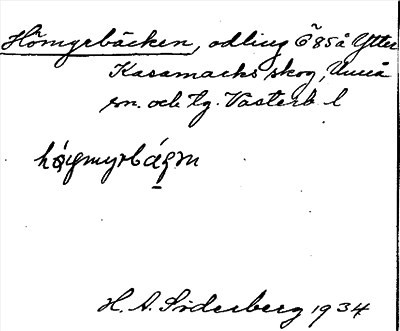 Hömyrbäcken, odling Ö 85 å Ytter
Kasamarks skog, Umeå
sn. och tg. Västerb. l
H. A. Söderberg 1934